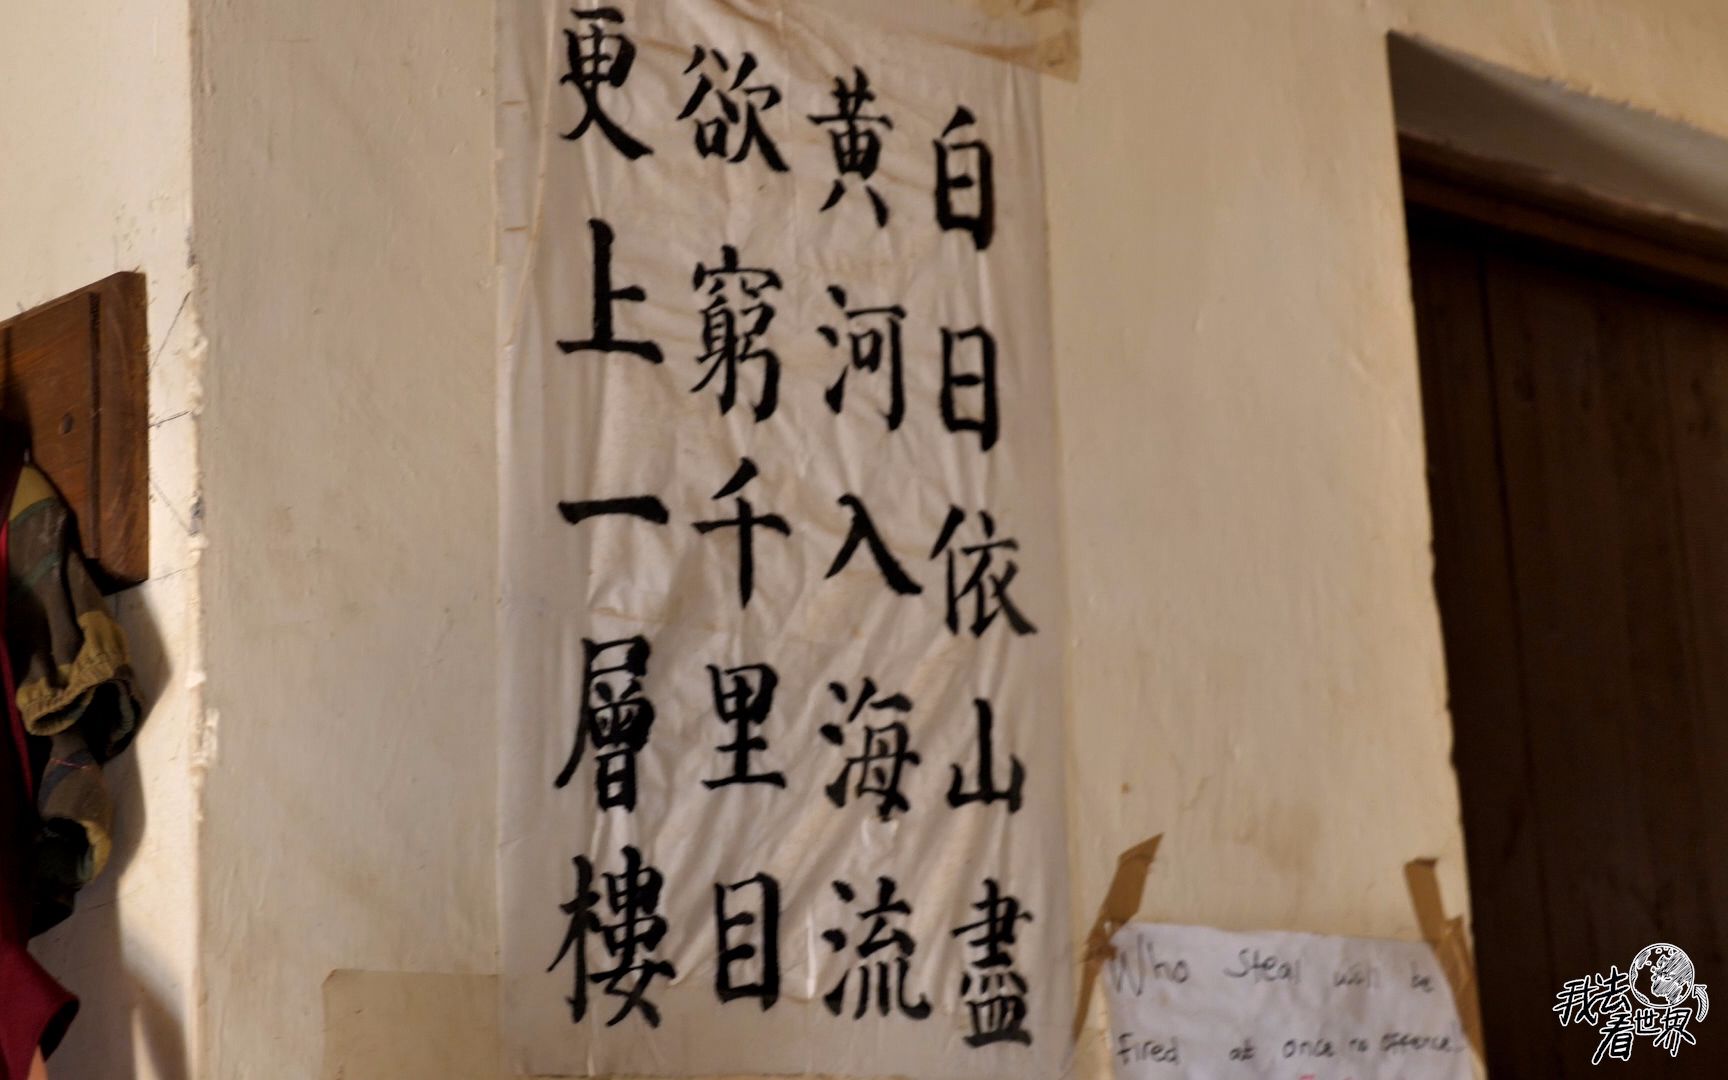 白日依山盡
黄河入海流
欲窮千里目
更上一層樓
Who Steal will be
fired at once no offence.
我去看世界